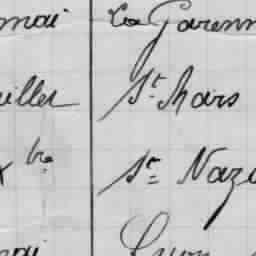 mai La Garenn
uillet St Mars
Xbre St Naza
mai Lyon